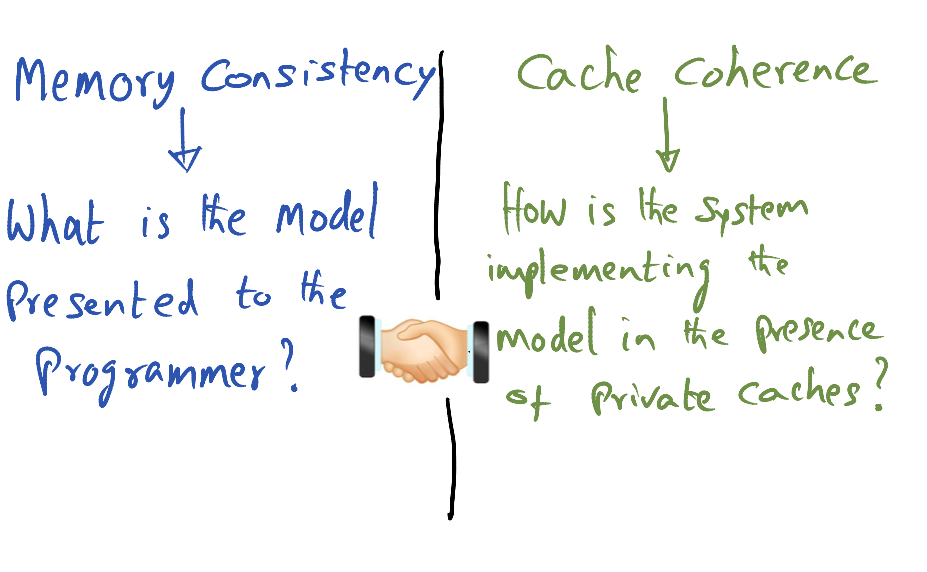 Memory Consistency
What is the Model
Presented to the
Programmer?
Cache Coherence
How is the System
implementing the
model in the presence
of private caches?